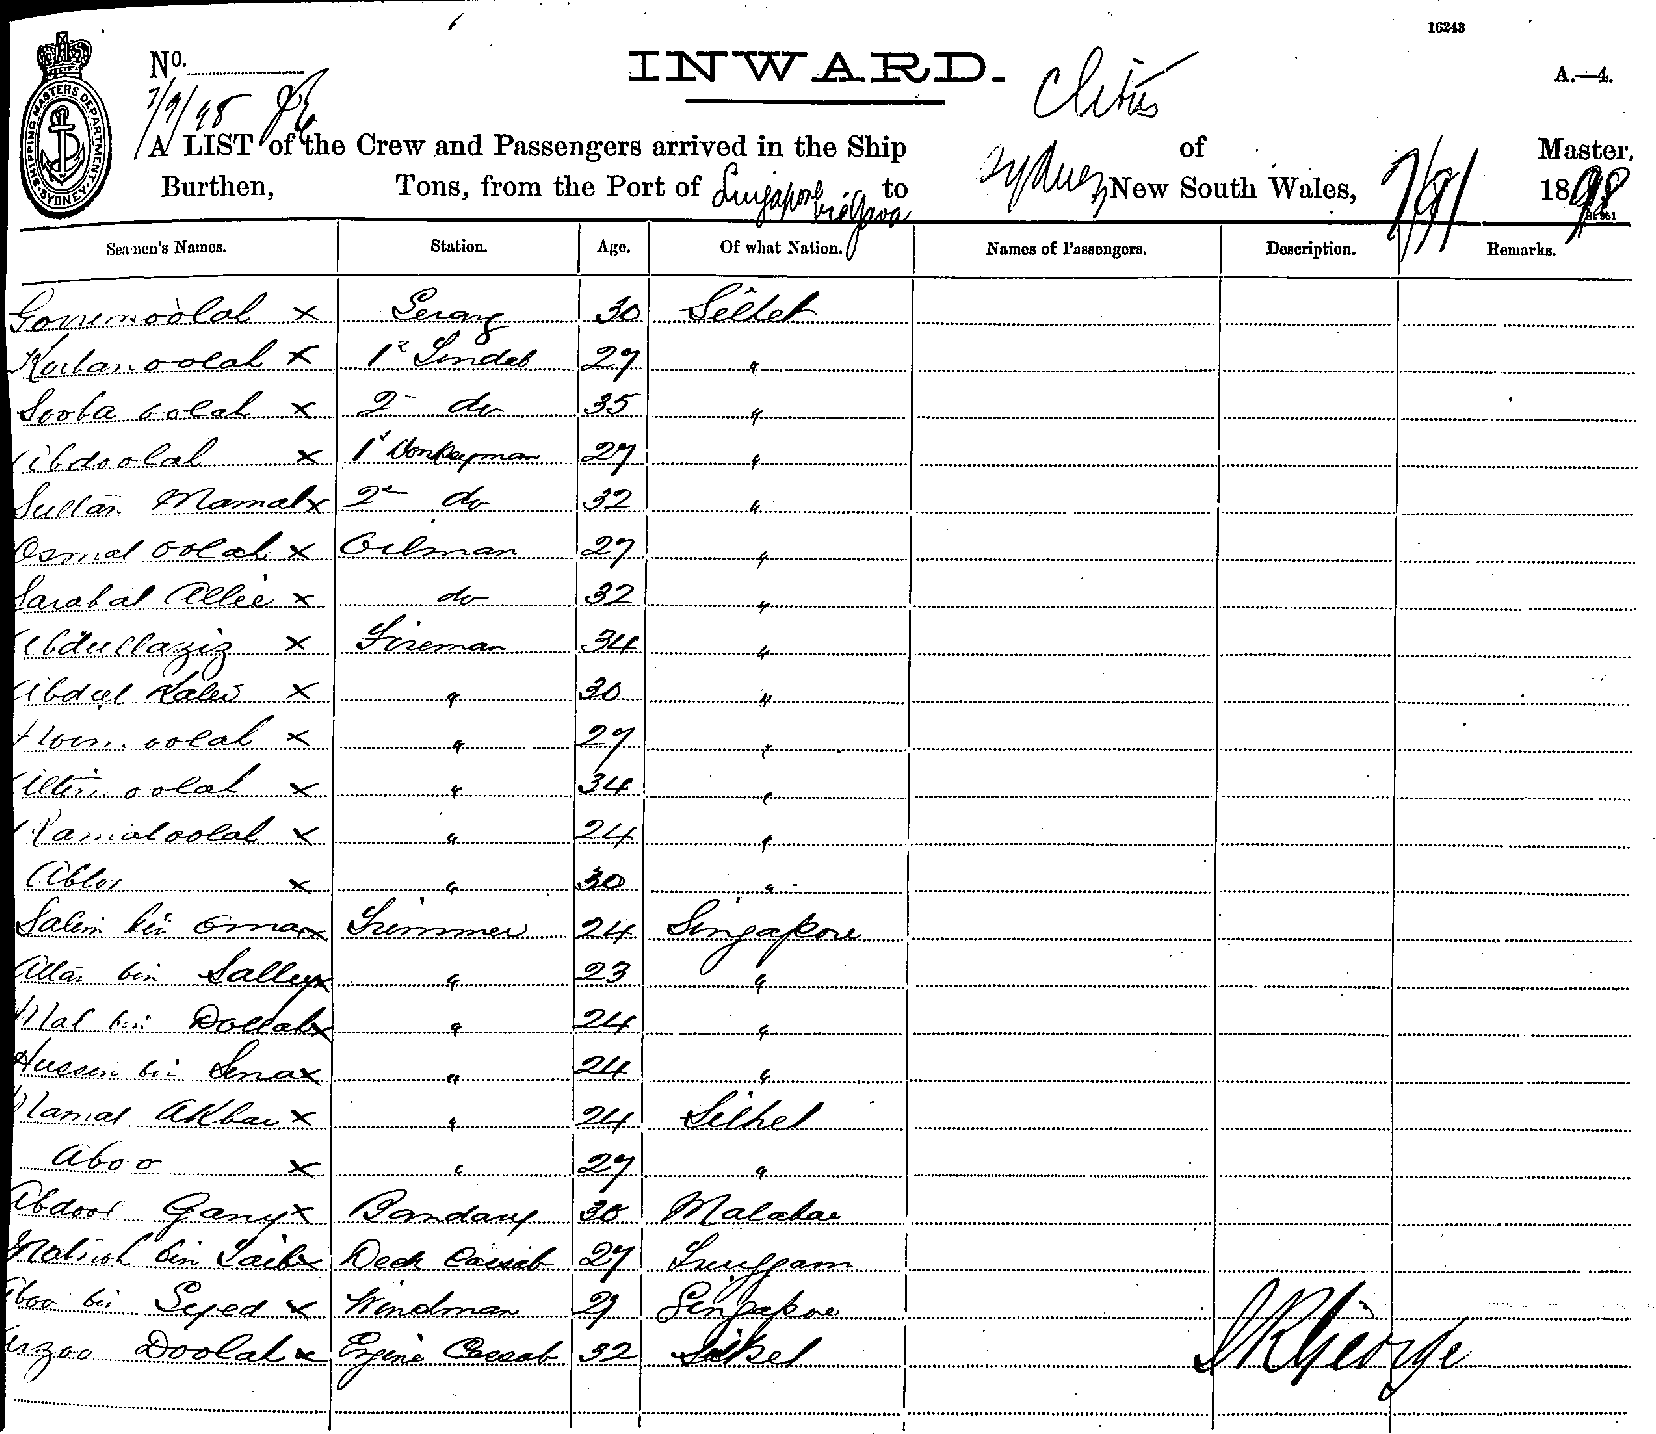 16243
No.
INWARD.
A.—4.
7/9/98
Clitus
A LIST of the Crew and Passengers arrived in the Ship of Master,
Burthen, Tons, from the Port of Singapore via to Sydney New South Wales, 7/9/ 1898
SHIPPING MASTERS DEPARTMENT SYDNEY
Seamen's Names. Station. Age. Of what Nation. Names of Passengers. Description. Remarks.
x Serang 30 Silhet
x 1st Tindal 27 "
Sooba oolah x 2nd do 35 "
Abdoolah x 1st Donkeyman 27 "
Sultan Mamat x 2nd do 32 "
Osmal oolah x Oilman 27 "
Sarabat Allie x do 32 "
Abdullaziz x Fireman 34 "
Abdul x " 30 "
oolah x " 27 "
oolah x " 34 "
Ramatoolah x " 24 "
x " 30 "
Salim bin Omar x Trimmer 24 Singapore
bin Salley x " 23 "
Mat bin Dollah x " 24 "
Hussin bin x " 24 "
Mamat Akbar x " 24 Silhet
Aboo x " 27 "
Abdool Gany x Bandary 30 Malabar
bin x Deck Cassab 27
Aboo bin Syed x Windman 29 Singapore
Doolah x Engine Cassab 32 Silhet
George